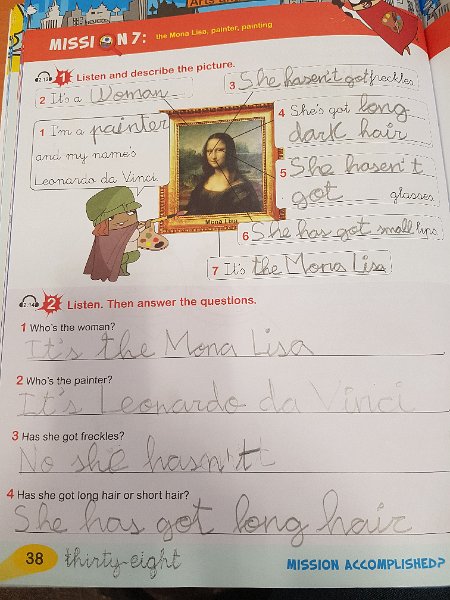 MISSION 7: the Mona Lisa, painter, painting
1 Listen and describe the picture.
2 It's a Woman
3 She hasen't got freckles
1 I'm a painter
and my name's
Leonardo da Vinci.
4 She's got long
dark hair
5 She hasen't
got glasses
Mona Lisa
6 She has got small lips
7 It's the Mona Liss
2 Listen. Then answer the questions.
1 Who's the woman?
It's the Mona Lisa
2 Who's the painter?
It's Leonardo da Vinci
3 Has she got freckles?
No she hasn't
4 Has she got long hair or short hair?
She has got long hair
38 thirty-eight
MISSION ACCOMPLISHED?